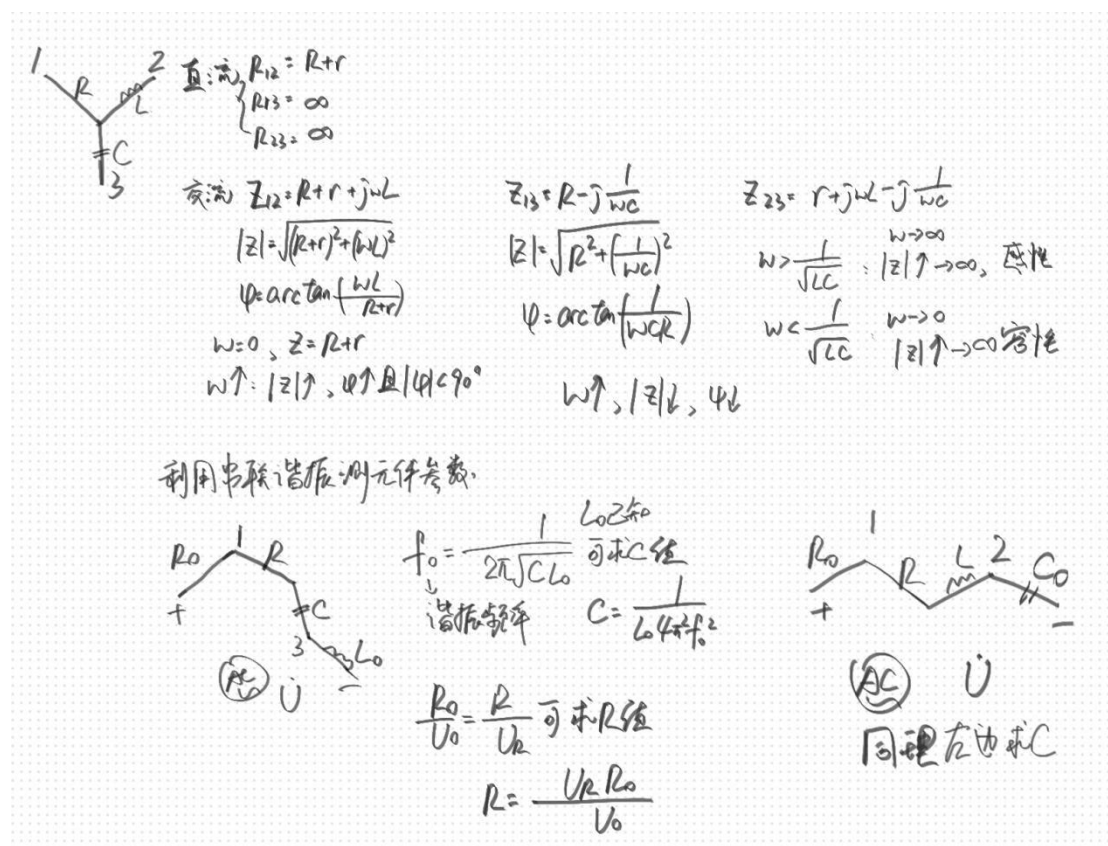 1
2
R
L
C
3
直流 R12 = R+r
R13 = ∞
R23 = ∞
交流 Z12 = R+r+jωL
|Z| = √((R+r)²+(ωL)²)
φ = arctan(ωL/(R+r))
ω=0, Z=R+r
ω↑: |Z|↑, φ↑且|φ|<90°
Z13 = R-j 1/ωC
|Z| = √(R²+(1/ωC)²)
φ = arctan(1/ωCR)
ω↑, |Z|↓, φ↓
Z23 = r+jωL-j 1/ωC
ω > 1/√LC : ω→∞ |Z|↑→∞, 感性
ω < 1/√LC : ω→0 |Z|↑→∞ 容性
利用串联谐振测元件参数.
R0
1
R
C
3
L0
+
-
AC
U̇
f0 = 1/(2π√CL0)
谐振频率
L0已知
可求C值
C = 1/(L0 4π² f0²)
R0/U0 = R/UR 可求R值
R = UR R0/U0
R0
1
R
L
2
C0
+
-
AC
U̇
同理左边求C